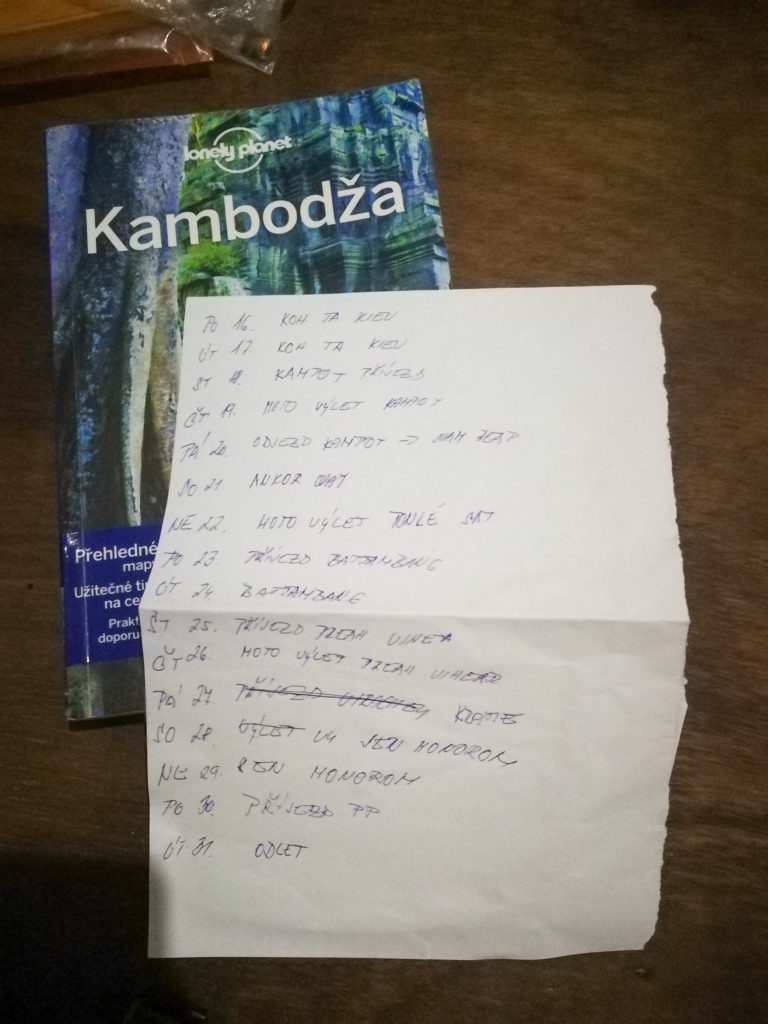 lonely planet
Kambodža
Přehledné
map
Užitečné ti
na ce
Prakt
doporu
PO 16. KOH TA KIEV
ÚT 17 KOH TA KIEV
ST 18. KAMPOT PŘÍJEZD
ČT 19. MOTO VÝLET KAMPOT
PÁ 20. ODJEZD KAMPOT ->
SO 21 ANKOR WAT
NE 22. MOTO VÝLET TONLÉ SAT
PO 23. PŘÍJEZD BATTAMBANG
ÚT 24 BATTAMBANG
ST 25. PŘÍJEZD PREAH VIHEA
ČT 26. MOTO VÝLET PREAH VIHEAR
PÁ 27 PŘÍJEZD VIRACHEY KRATIE
SO 28. VÝLET SEN MONOROM
NE 29. SEN MONOROM
PO 30. PŘÍJEZD PP
ÚT 31. ODLET